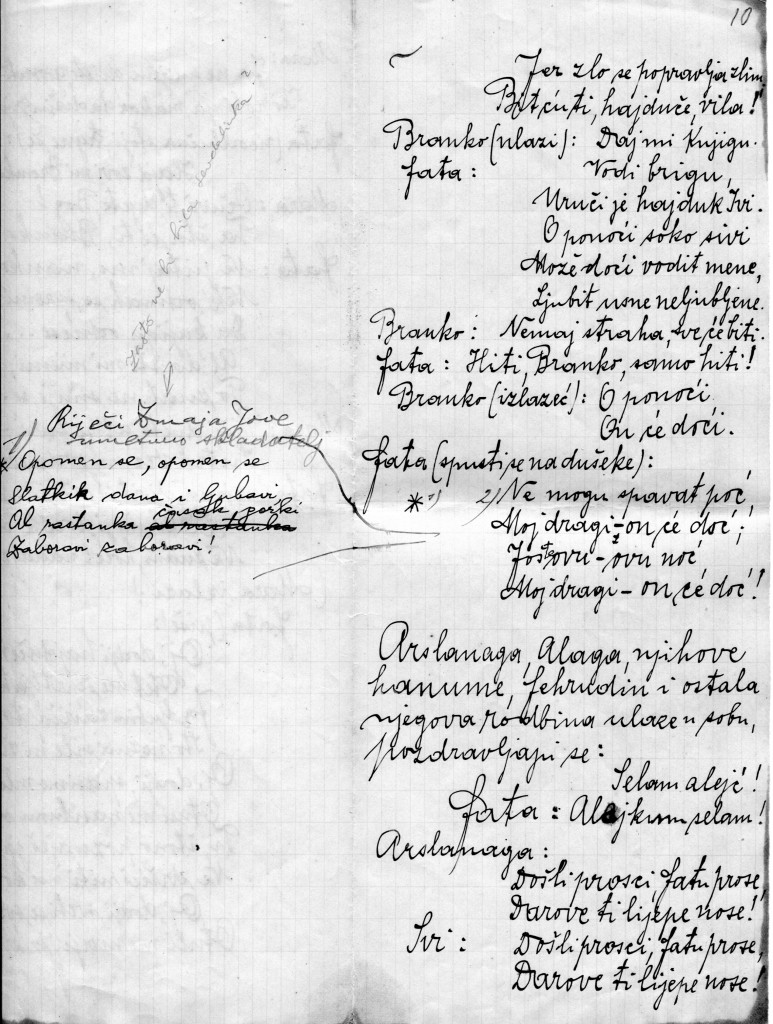 10
~ Jer zlo se popravlja zlim,
Bit ću ti, hajduče, vila!
Branko (ulazi): Daj mi knjigu.
Fata: Vodi brigu,
Uruči je hajduk Ivi.
O ponoći soko sivi
Može doći vodit mene,
Ljubit usne neljubljene.
Branko: Nemaj straha, sve će biti.
Fata: Hiti, Branko, samo hiti!
Branko (izlazeć): O ponoći
On će doći.
Fata (spusti se na dušeke):
*1) 2) Ne mogu spavat poć,
Moj dragi – on će doć;
Još ovu – ovu noć,
Moj dragi – on će doć!
Arslanaga, Alaga, njihove
hanume, Fehrudin i ostala
njegova rodbina ulaze u sobu,
pozdravljaju se:
Selam alejć!
Fata: Alejkum selam!
Arslanaga:
Došli prosci, Fatu prose,
Darove ti lijepe nose!
Svi: Došli prosci, Fatu prose,
Darove ti lijepe nose!
zašto ne bi bila sevdalinka?
Riječi Zmaja Jove
umetnuo skladatelj
1)
* Opomen se, opomen se
Slatkih dana i ljubavi,
Al rastanka al rastanka
Zaboravi zaboravi!